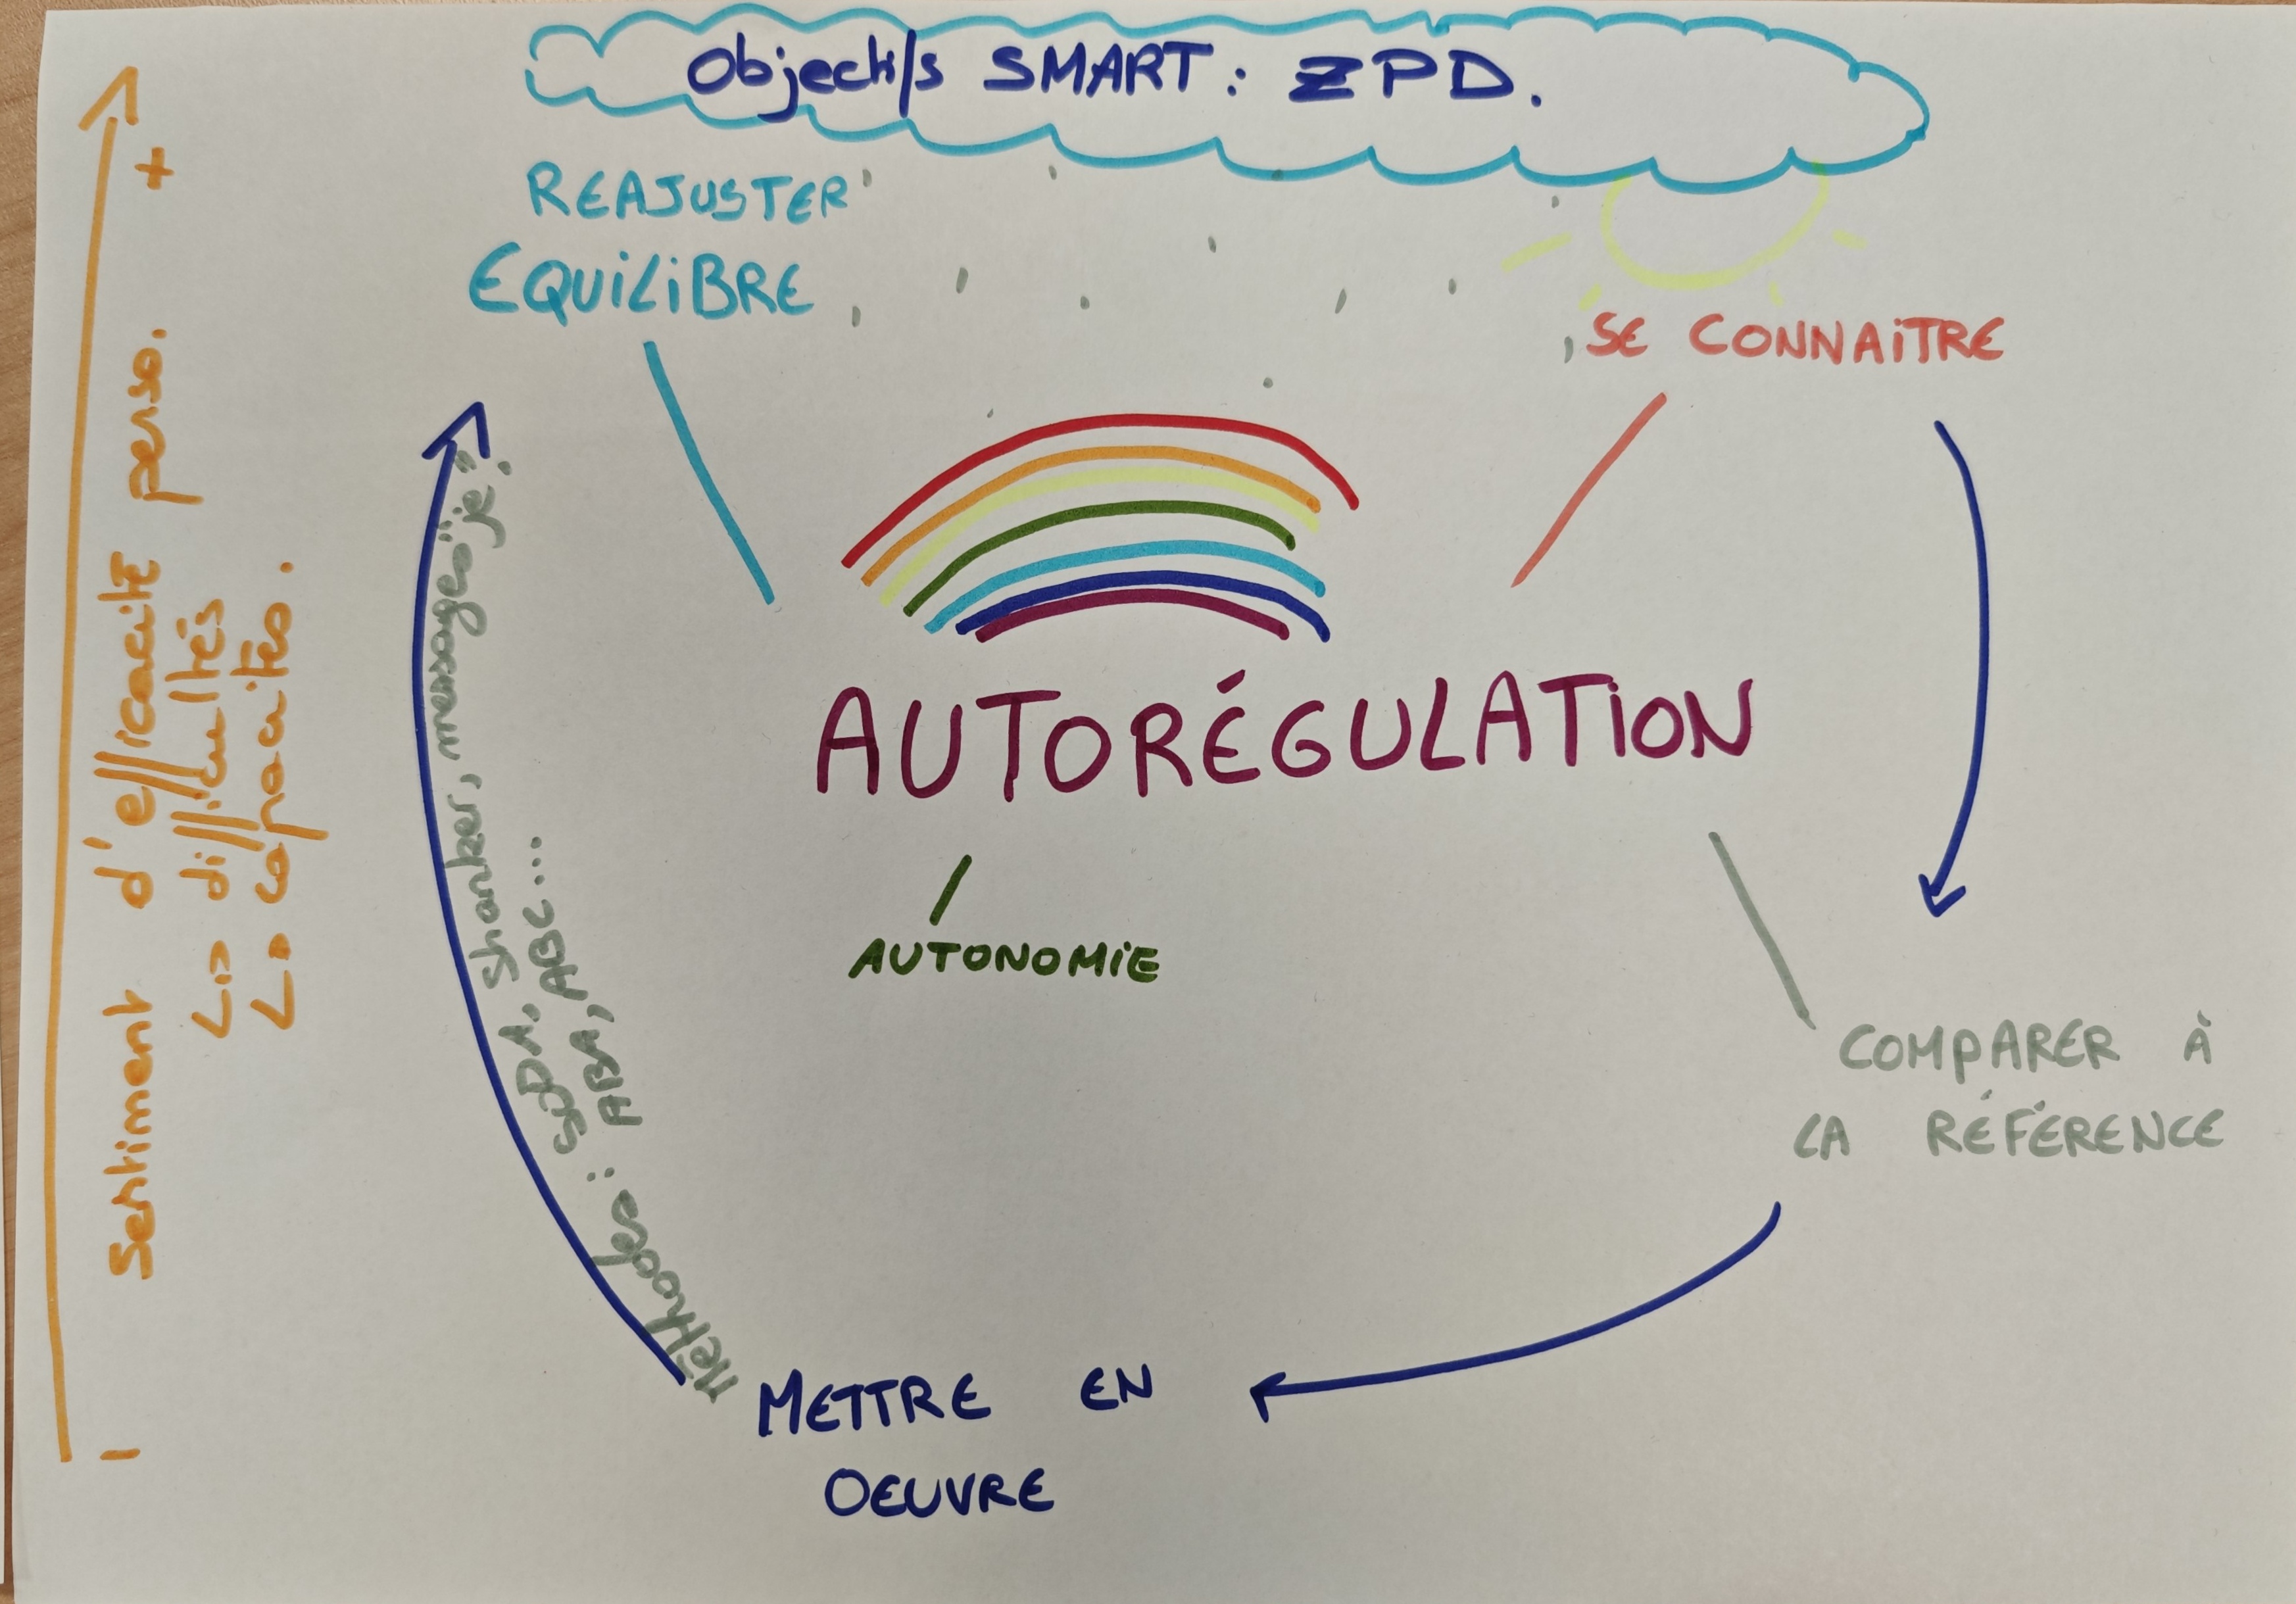 Objectifs SMART : ZPD.
REAJUSTER
EQUiLiBRE
SE CONNAiTRE
AUTORÉGULATiON
AUTONOMiE
COMPARER À
LA RÉFÉRENCE
METTRE EN
OEUVRE
Méthodes : SiDA, Shanker, messages "je".
ABA, ABC...
+
Sentiment d'efficacité perso.
↳ difficultés
↳ capacités.
-